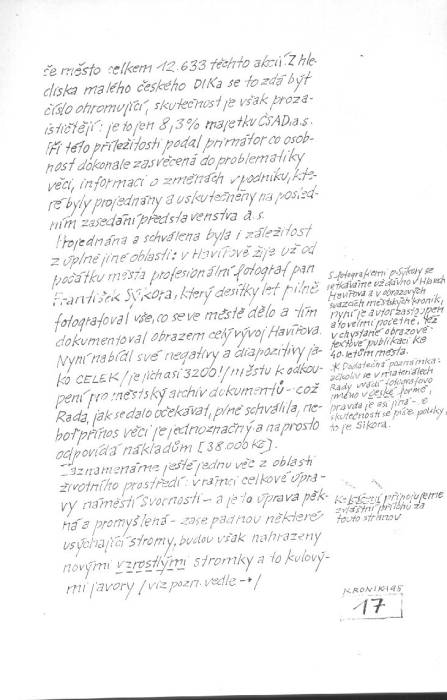 že město celkem 12.633 těchto akcií. Z hle-
diska malého českého DIKa se to zdá být
číslo ohromující, skutečnost je však proza-
ističtější: je to jen 8,3% majetku ČSAD a.s.
Při této příležitosti podal primátor co osob-
nost dokonale zasvěcená do problematiky
věci, informaci o změnách v podniku, kte-
ré byly projednány a uskutečněny na posled-
ním zasedání představenstva a.s.
Projednána a schválena byla i záležitost
z úplně jiné oblasti: v Havířově žije už od
počátku města profesionální fotograf pan
František Sýkora, který desítky let pilně
fotografoval vše, co se ve městě dělo a tím
dokumentoval obrazem celý vývoj Havířova.
Nyní nabídl své negativy a diapozitivy ja-
ko CELEK / je jich asi 3200! / městu k odkou-
pení pro městský archiv dokumentů - což
Rada, jak se dalo očekávat, plně schválila, ne-
boť přínos věci je jednoznačný a naprosto
odpovídá nákladům [38.000 Kč].
Zaznamenáme ještě jednu věc z oblasti
životního prostředí: v rámci celkové úpra-
vy náměstí Svornosti - a je to úprava pěk-
ná a promyšlená - zase padnou některé
usychající stromy, budou však nahrazeny
novými vzrostlými stromky a to kulový-
mi javory / viz pozn. vedle → /
S fotografiemi p. Sýkory se
setkáváme už dávno v Hlasech
Havířova a v obrazových
svazcích městských kronik,
nyní je autor zastoupen
a to velmi početně, též
v chystané obrazově-
textové publikaci ke
40. letům města.
* Dodatečná poznámka:
ačkoliv se v materiálech
Rady uvádí fotografovo
jméno v této formě,
pravda je asi jiná - ve
skutečnosti se píše
to je Sikora.
připojujeme
zvláštní přílohu za
touto stranou
KRONIKA 95
17